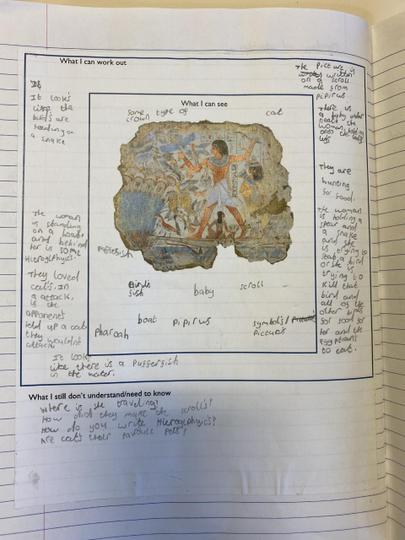 What I can work out
The picture is
written
on a scroll
made from
pipirus
It looks
like the
birds are
standing on
a snake
What I can see
some type of
crown
cat
There is
a baby under
neath the
woman holding
onto the
legs
They are
hunting
for food.
The woman
is standing
on a boat
and behind
her is some
Hieroglyphics
The woman
is holding a
spear and
a snake
and she
is trying to
stab a bird
or she is
trying to
kill that
bird and
all of the
other birds
for food for
her and the
Egyptians
to eat.
They loved
cats. In
a attack,
is the
opponent
held up a cat
they wouldn't
attack
Birds
fish
baby
scroll
boat
pipirus
symbols/
Pictures
Pharoah
It looks
like there is a Pufferfish
in the water.
What I still don't understand/need to know
Where is she traveling?
How did they make the scrolls?
How do you write Hieroglyphics?
Are cats their favourite pets?